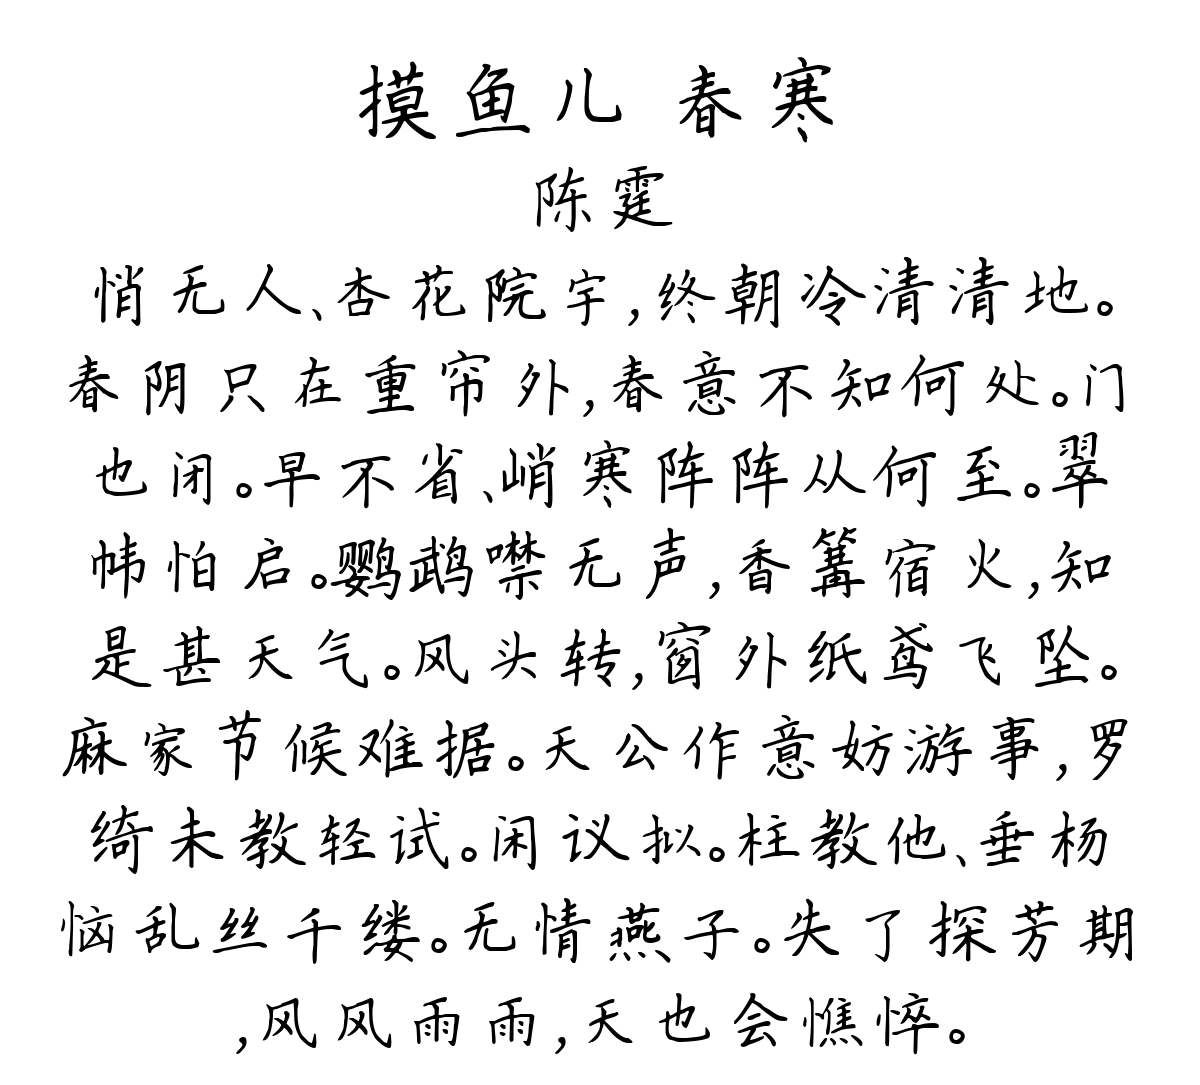 摸鱼儿 春寒
陈霆
悄无人、杏花院宇,终朝冷清清地。
春阴只在重帘外,春意不知何处。门
也闭。早不省、峭寒阵阵从何至。翠
帏怕启。鹦鹉噤无声,香篝宿火,知
是甚天气。风头转,窗外纸鸢飞坠。
麻家节候难据。天公作意妨游事,罗
绮未教轻试。闲议拟。柱教他、垂杨
恼乱丝千缕。无情燕子。失了探芳期
,风风雨雨,天也会憔悴。